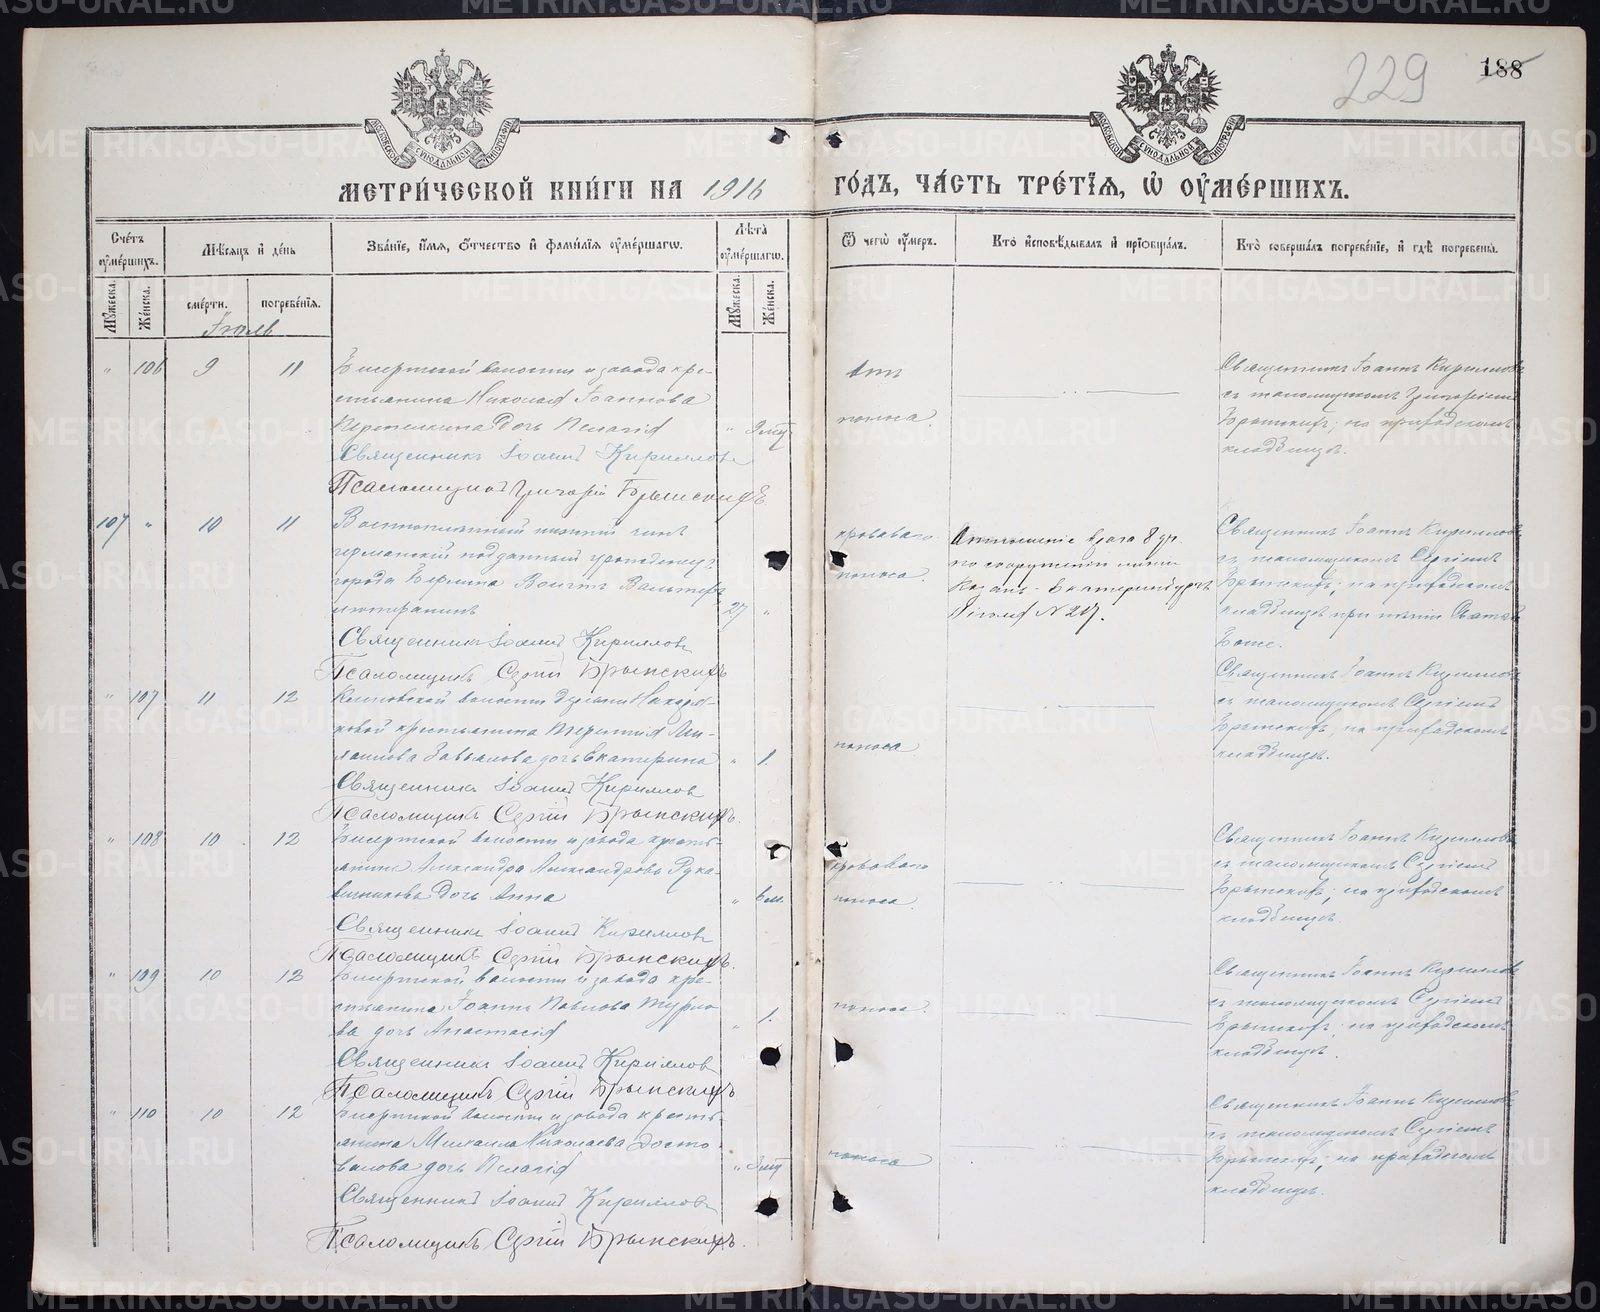 229
188
МЕТРИ́ЧЕСКОЙ КНИ́ГИ НА 1916 ГО́ДЪ, ЧА́СТЬ ТРЕ́ТІѦ, Ѡ҆ ОУ҆МЕ́РШИХЪ.
Сче́тъ оу҆ме́ршихъ.
Мѣ́сѧцъ и҆ де́нь
Зва́ніе, и҆́мѧ, ѻ҆́тчество и҆ фами́лїѧ оу҆ме́ршагѡ.
Лѣ́та оу҆ме́ршагѡ.
Ѿ чегѡ̀ оу҆́меръ.
Кто̀ и҆сповѣ́дывалъ и҆ прїѡбща́лъ.
Кто̀ соверша́лъ погребе́нїе, и҆ гдѣ̀ погребены̀.
Мꙋ́жеска.
Же́нска.
сме́рти.
погребе́нїѧ.
Мꙋ́жеска.
Же́нска.
Іюль
" 106 9 11
Бисертской волости и завода кре-
стьянина Николая Іоаннова
дочь Пелагія
Священникъ Іоаннъ Кирилловъ
Псаломщикъ Григорій Брынскихъ
отъ
поноса.
Священникъ Іоаннъ Кирилловъ
съ псаломщикомъ Григоріемъ
Брынскихъ; на приходскомъ
кладбищѣ.
107 " 10 11
Военноплѣнный нижній чинъ
германскій подданный уроженецъ
города Берлина Вальтеръ
лютеранинъ
27 "
Священникъ Іоаннъ Кирилловъ
Псаломщикъ Сергій Брынскихъ
кроваваго
поноса.
Отношеніе врача 8 уч.
по сооруженію линіи
Казань - Екатеринбургъ
№ 207.
Священникъ Іоаннъ Кирилловъ
съ псаломщикомъ Сергіемъ
Брынскихъ; на приходскомъ
кладбищѣ при пѣніи Святый
Боже.
" 107 11 12
Кленовской волости деревни
крестьянина Терентія
Завьялова дочь Екатерина
" 1.
Священникъ Іоаннъ Кирилловъ
Псаломщикъ Сергій Брынскихъ.
поноса
Священникъ Іоаннъ Кирилловъ
съ псаломщикомъ Сергіемъ
Брынскихъ; на приходскомъ
кладбищѣ.
" 108 10 12
Бисертской волости и завода кресть-
янина Александра Александрова Рука-
вишникова дочь Анна
" 6 м.
Священникъ Іоаннъ Кирилловъ
Псаломщикъ Сергій Брынскихъ.
кроваваго
поноса.
Священникъ Іоаннъ Кирилловъ
съ псаломщикомъ Сергіемъ
Брынскихъ; на приходскомъ
кладбищѣ.
" 109 10 12
Бисертской волости и завода кре-
стьянина Іоанна Павлова
дочь Анастасія
" 1.
Священникъ Іоаннъ Кирилловъ
Псаломщикъ Сергій Брынскихъ
поноса.
Священникъ Іоаннъ Кирилловъ
съ псаломщикомъ Сергіемъ
Брынскихъ; на приходскомъ
кладбищѣ.
" 110 10 12
Бисертской волости и завода кресть-
янина Михаила Николаева Досто-
валова дочь Пелагія
Священникъ Іоаннъ Кирилловъ
Псаломщикъ Сергій Брынскихъ.
поноса
Священникъ Іоаннъ Кирилловъ
съ псаломщикомъ Сергіемъ
Брынскихъ; на приходскомъ
кладбищѣ.
METRIKI.GASO-URAL.RU